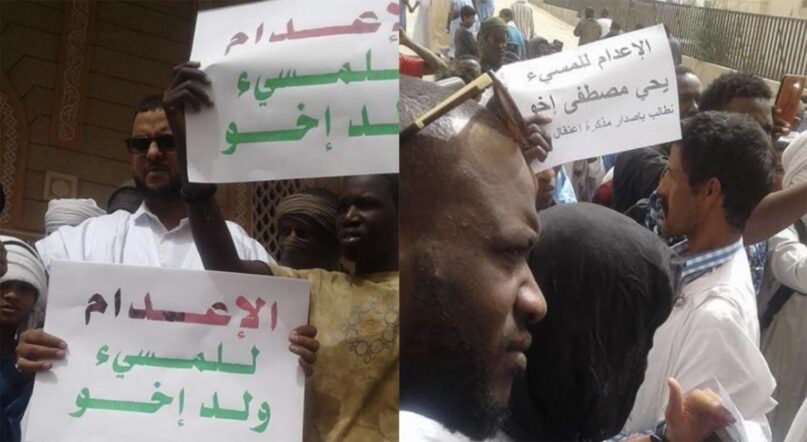 الإعدام
للمسيء
ولد إخو
الإعـدام
للمـسـيء
ولـد إخـو
الإعدام للمسيء
يحي مصطفى إخو
نطالب بإصدار مذكرة اعتقال